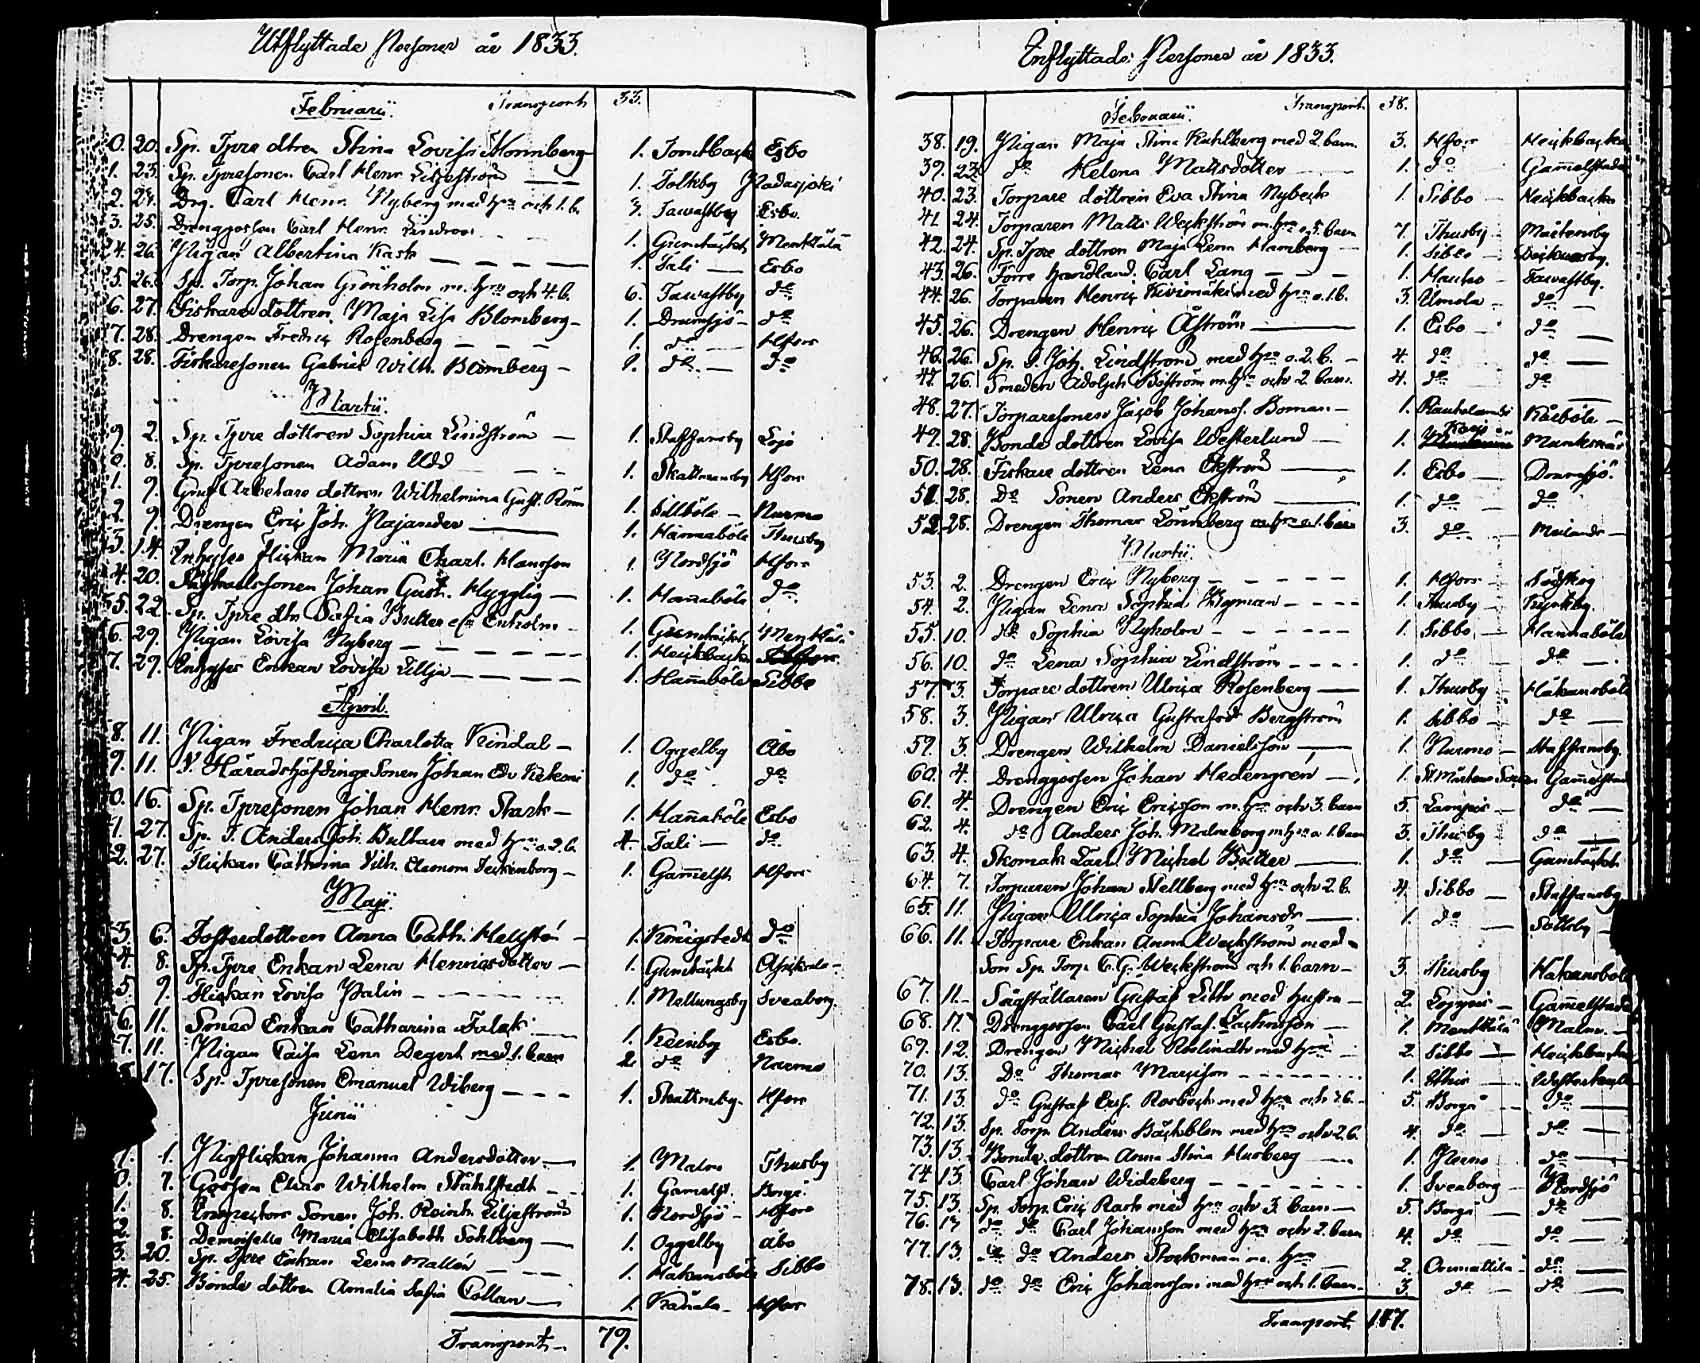 Utflyttade Personer år 1833.
Februarii. Transport 33.
0. 20. Sp. Tpre dtren Stina Lovisa 1. Esbo
1. 23. Sp. Tpresonen Carl Henr. Liljeström 1. Tolkby Padasjoki
2. 24. Drg. Carl Henr. Nyberg med hru och 1. b. 3. Tawastby Esbo.
3. 25. Drenggossen Carl Henr. Lindroos 1. Gumtäckt Menttälä
4. 26. Pigan Albertina Rask 1. Tali Esbo
5. 26. Sp. Torp. Johan Grönholm m. hru och 4. b. 6. Tawastby do
6. 27. Fiskare dottren Maja Lisa Blomberg 1. Drumsjö do
7. 28. Drengen Fredric Rosenberg 1. do Hfors
8. 28. Fiskaresonen Gabriel Wilh. Blomberg 1. do do
Martii.
9. 2. Sp. Tpre dottren Sophia Lindström 1. Staffansby Lojo
0. 8. Sp. Tpresonen Adam Udd 1. Skattmansby Hfors
1. 9. Arbetare dottren Wilhelmina Gust. 1. Sillböle Nurmo
2. 9. Drengen Eric Joh. Pajander 1. Hannaböle Thusby
3. 14. Inhyses Flickan Maria Charl. Hansson 1. Nordsjö Hfors
4. 20. Johan Gust. Hygglig 1. Hannaböle do
5. 22. Sp. Tpre dtr Sofia Enholm 1. Gumtäckt Menttälä
6. 29. Pigan Lovisa Nyberg 1. Hickbacka Hfors
7. 29. Inhyses Enkan Lovisa Lilja 1. Hannaböle Sibbo
April.
8. 11. Pigan Fredrica Charlotta Vindal 1. Oggelby Åbo
9. 11. V. Häradshöfdinge Sonen Johan Edv. 1. do do
0. 16. Sp. Tpresonen Johan Henr. Stark 1. Hannaböle Esbo
1. 27. Sp. T. Anders Joh. Bultars med hru o. 2. b. 4. Tali do
2. 27. Flickan Catharina Vilh. Eleonora 1. Gammelst. Hfors
Maji.
3. 6. Fosterdottren Anna Cath. Hellstén 1. Königstedt do
4. 8. Sp. Tpre Enkan Lena Henricsdotter 1. Gumtäckt
5. 9. Flickan Lovisa Palin 1. Mellungsby Sveaborg.
6. 11. Smed Enkan Catharina Falck 1. Esbo.
7. 11. Pigan Caisa Lena Degert med 1. barn 2. do Nurmo
17. Sp. Tpresonen Emanuel Wiberg 1. Skattmby. Hfors
Junii
1. Pigflickan Johanna Andersdotter 1. Malm Thusby
7. Gossen Elias Wilhelm Ståhlstedt 1. Gamelst. Borgå
1. 8. Inspectors Sonen Joh. Reinh. Liljeström 1. Nordsjö Hfors
2. 8. Demoiselle Maria Elisabeth Sohlberg 1. Oggelby Åbo
3. 20. Sp. Tpre Enkan Lena Mallén 1. Håkansböle Sibbo
4. 25. Bonde dottren Amalia Sofia Collan 1. Hfors
Transport 79.
Inflyttade Personer år 1833.
Februarii. Transport 58.
38. 19. Pigan Maja Stina Kuhlberg med 2. barn 3. Hfors Hickbacka
39. 23. do Helena Mattsdotter 1. do Gammelstaden
40. 23. Torpare dottren Eva Stina Nybeck 1. Sibbo Hickbacka
41. 24. Torparen Matts Weckström m. hru o. 5. barn 7. Thusby Mårtensby
42. 24. Sp. Tpre dottren Maja Lena Hamberg 1. Sibbo Dickursby.
43. 26. Förre Handland. Carl Lang 1. Hauho Tawastby.
44. 26. Torparen Henric Kivimäki med hru o. 1. b. 3. Umola do
45. 26. Drengen Henric Åström 1. Esbo do
46. 26. Sp. T. Joh. Lindström med hru o. 2. b. 4. do do
47. 26. Smeden Adolph Boström m. hru och 2. barn. 4. do do
48. 27. Torparesonen Jacob Johanss. Boman 1. Kårböle
49. 28. Bonde dottren Lovisa Westerlund 1. Munksnäs
50. 28. Fiskare dottren Lena Ekström 1. Esbo Drumsjö
51. 28. Do Sonen Anders Ekström 1. do do
52. 28. Drengen Thomas Lönnberg m. hru o. 1. barn 3. do Meilans
Martii
53. 2. Drengen Eric Nyberg 1. Hfors Södskog
54. 2. Pigan Lena Sophia Wigman 1. Thusby
55. 10. Do Sophia Nyholm 1. Sibbo Hannaböle
56. 10. do Lena Sophia Lindström 1. do do
57. 3. Torpare dottren Ulrica Rosenberg 1. Thusby Håkansböle
58. 3. Pigan Ulrica Gustafva Bergström 1. Sibbo do
59. 3. Drengen Wilhelm Danielsson 1. Nurmo Staffansby.
60. 4. Drenggossen Johan Hedengren 1. St. Mårtens Socken Gammelstad
61. 4. Drengen Eric Ericsson m. hru och 3. barn 5. Lampis do
62. 4. do Anders Joh. Malmberg m. hru o. 1. barn 3. Thusby do
63. 4. Skomak. Carl Michel Bötter 1. do Gumtäckt
64. 7. Torparen Johan Stellberg med hru och 2. b. 4. Sibbo Staffansby
65. 11. Pigan Ulrica Sophia Johansdr 1. do Sottby
66. 11. Torpare Enkan Anna Weckström med
Son Sp. Torp. C. G. Weckström och 1. barn 3. Thusby Håkansböle
67. 11. Sågställaren Gustaf Lith med hustru 2. Loppis Gammelstad
68. 11. Drenggossen Carl Gustaf 1. Menttälä Malm
69. 12. Drengen Michel med hru 2. Sibbo Hickbacka
70. 13. Do Thomas 1. Westerkulla
71. 13. do Gustaf Eric. med hru och 5. Borgå do
72. 13. Sp. Torp. Anders Bäckblom med hru och 2. b. 4. do do
73. 13. Bonde dottren Anna Stina Husberg 1. Perno do
74. 13. Carl Johan Wideberg 1. Sveaborg Nordsjö
75. 13. Sp. Torp. Eric Rask med hru och 3. barn 5. Borgå do
76. 13. do do Carl Johansson med hru och 2. barn 4. do do
77. 13. do do Anders Stockman m. hru 2. Orimattila do
78. 13. do do Eric Johansson med hru och 1. barn 3. do do
Transport 147.